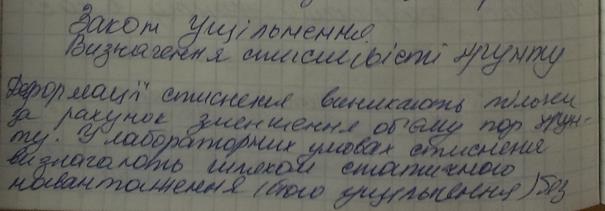 Закон ущільнення
Визначення стисливісті ґрунту
Деформації стиснення виникають тільки
за рахунок зменшення об'єму пор ґрун-
ту. У лабораторних умовах стиснення
визначають шляхом статичного
навантаження (його ущільнення) без